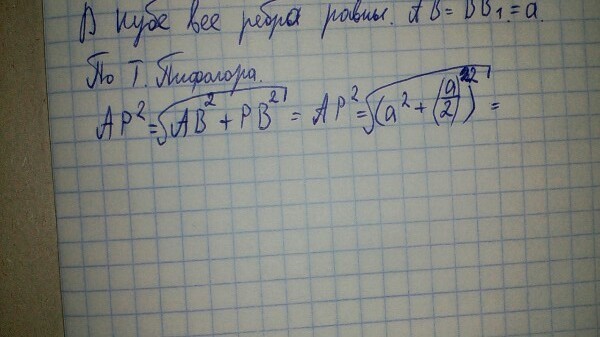 В кубе все ребра равны. AB = BB₁ = a.
По Т. Пифагора.
AP² = √(AB² + PB²) = AP² = √(a² + (a/2)²) =